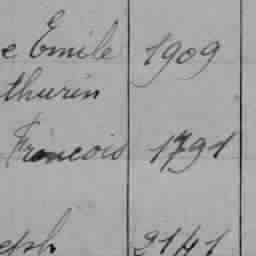 e Emile 1909
thurin
François 1791
eph 2141